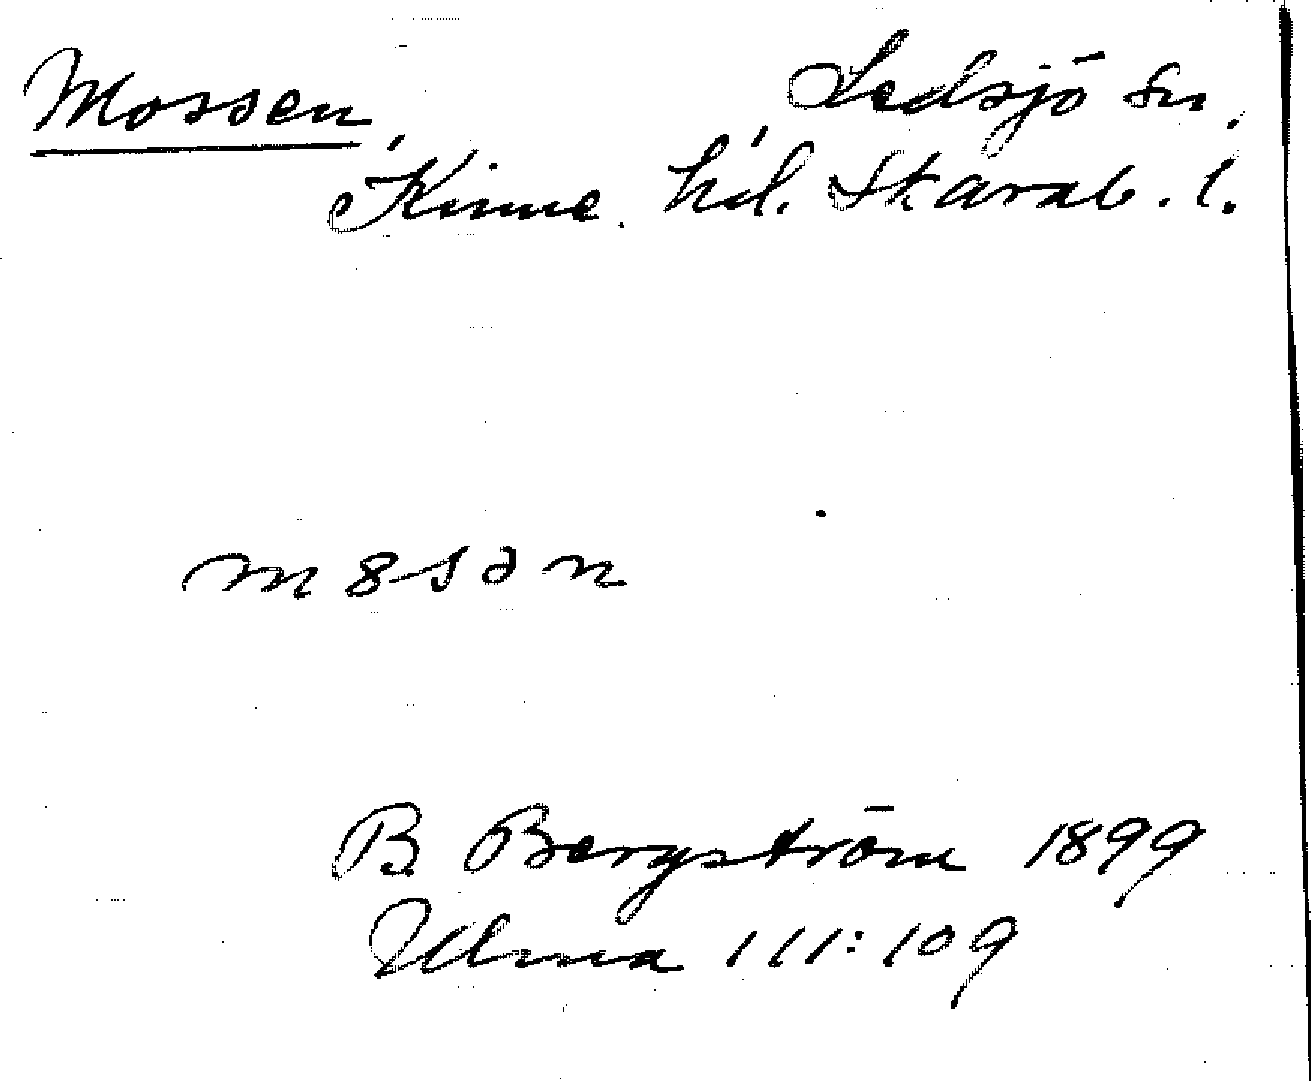 Mossen, Ledsjö sn.
Kinne hd. Skarab. l.
m8sən
B. Bergström 1899
Ulma 111:109